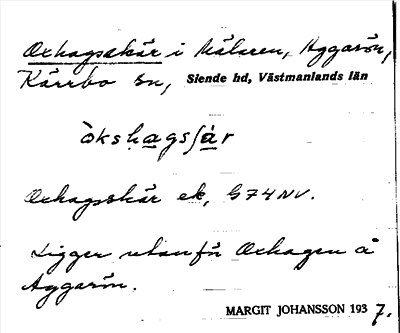 Oxhagsskär i Mälaren, Aggarön,
Kärrbo sn, Siende hd, Västmanlands län
òkshagsʃár
Oxhagsskär ek, G74NV.
Ligger utanför Oxhagen å
Aggarön.
MARGIT JOHANSSON 1937.